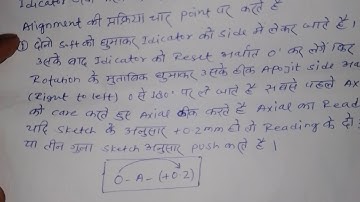 Alignment की प्रक्रिया चार point पर करते है
① दोनो Saft को घुमाकर Idicator को Side मे लेकर जाते है।
उसके बाद Idicator को Reset अर्थात 0° कर लेगे फिर
Rotation के मुताबिक घुमाकर उसके ठीक Apojit side
(Right to left) 0 से 180° पर ले जाते है सबसे पहले
को care करते हुए Axial ठीक करते है Axial का Read
यदि Sketch के अनुसार +0.2mm हो तो Reading के दो
या तीन गुना Sketch अनुसार push करते है।
0 - A - (+0.2)